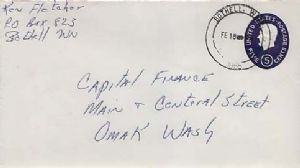 Ken Fletcher
PO Box 825
Bothell WN
BOTHELL
FEB 18
UNITED STATES POSTAGE
FIVE 5 CENTS
Capital Finance
Main & Conteral Street
Omak Wash